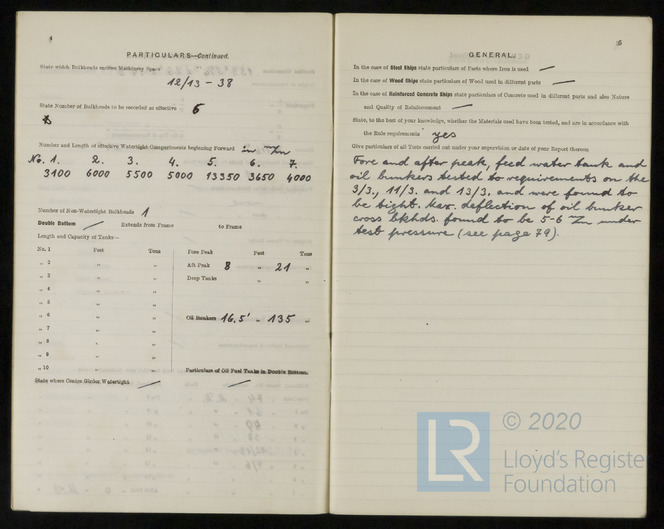 4
PARTICULARS—Continued.
State which Bulkheads enclose Machinery Space
12/13 - 38
State Number of Bulkheads to be recorded as effective - 6
Number and Length of effective Watertight Compartments beginning Forward in m/m
No. 1. 2. 3. 4. 5. 6. 7.
3100 6000 5500 5000 13350 3650 4000
Number of Non-Watertight Bulkheads 1
Double Bottom Extends from Frame to Frame
Length and Capacity of Tanks—
No. 1 Feet Tons Fore Peak Feet Tons
„ 2 „ „ Aft Peak 8 „ 21 „
„ 3 „ „ Deep Tanks „ „
„ 4 „ „
„ 5 „ „
„ 6 „ „ Oil Bunkers 16,5' - 135 „
„ 7 „ „
„ 8 „ „
„ 9 „ „
„ 10 „ „ Particulars of Oil Fuel Tanks in Double Bottom.
State where Centre Girder Watertight
5
GENERAL.
In the case of Steel Ships state particulars of Parts where Iron is used
In the case of Wood Ships state particulars of Wood used in different parts
In the case of Reinforced Concrete Ships state particulars of Concrete used in different parts and also Nature
and Quality of Reinforcement
State, to the best of your knowledge, whether the Materials used have been tested, and are in accordance with
the Rule requirements yes
Give particulars of all Tests carried out under your supervision or date of your Report thereon
Fore and after peak, feed water tank and
oil bunkers tested to requirements on the
3/3, 11/3. and 13/3, and were found to
be tight. Max. deflection of oil bunker
cross bkhds. found to be 5-6 m/m under
test pressure (see page 79).
LR © 2020
Lloyd's Register
Foundation